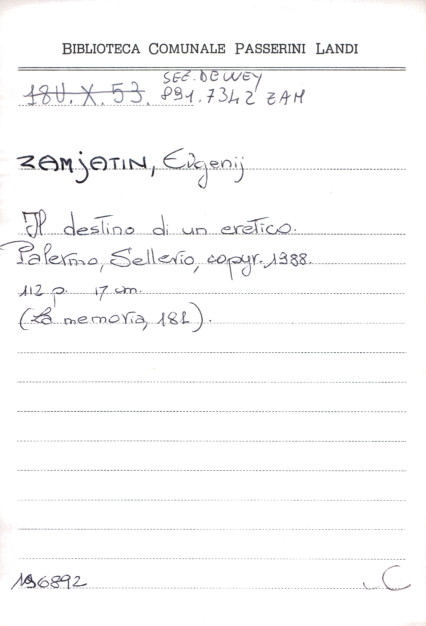 BIBLIOTECA COMUNALE PASSERINI LANDI
SEZ. DEWEY
18U. X. 53. 891.7342 ZAM
ZAMJATIN, Evgenij
Il destino di un eretico.
Palermo, Sellerio, copyr. 1988.
112 p. 17 cm.
(La memoria, 181).
196892
C